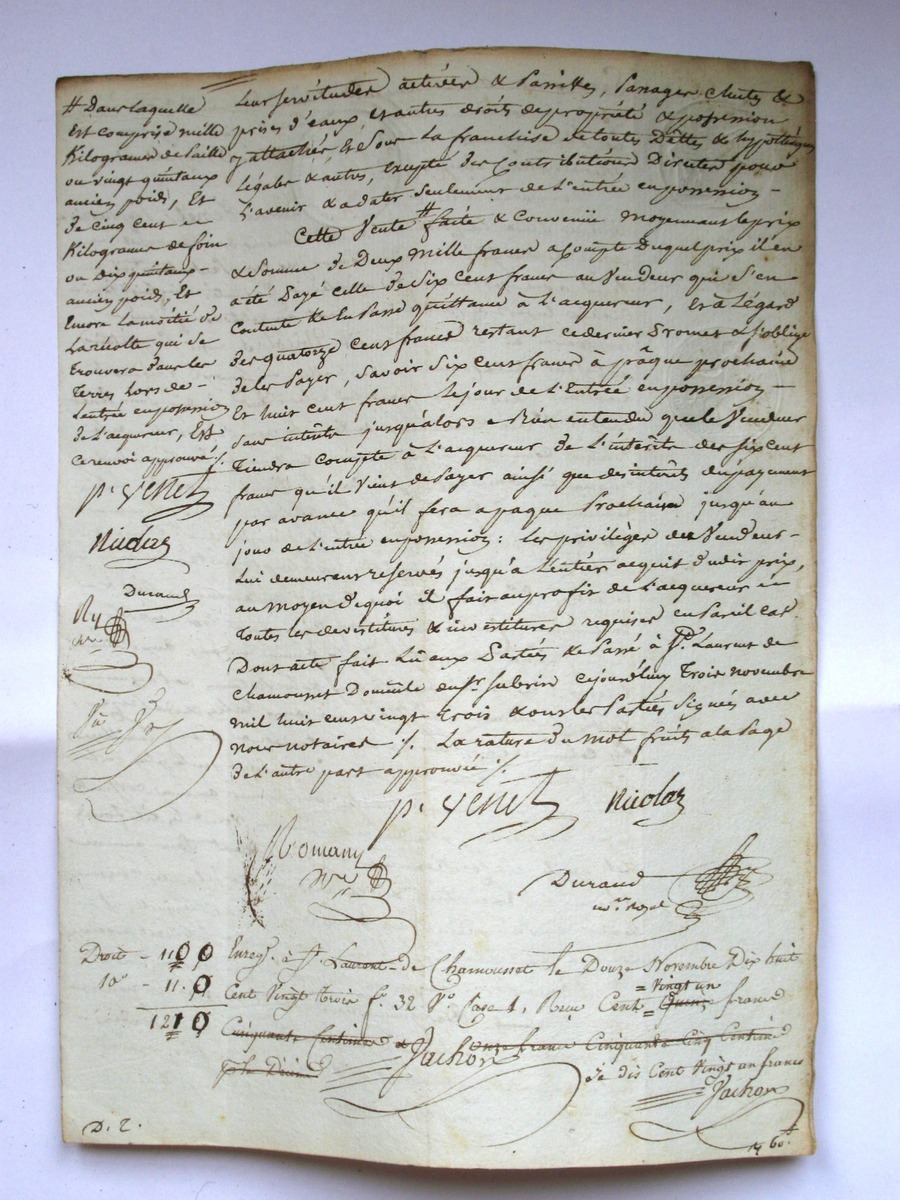 leurs servitudes actives & Passives, Passages chutes &
prises d'eaux et autres droits de propriété & possession
y attachés Et Sous la franchise de toutes Dettes & hypothèques
Légales & autres, Excepté des Contributions Directes pour
L'avenir & a dater seulement de L'entrée en possession -
Cette Vente # faite & convenüe moyennant le prix
& Somme de Deux mille francs a compte duquel prix il en
a été Payé celle de Six Cent francs au Vendeur qui S'en
Contente & en Passe quittance à L'acquereur, et à Légard
des quatorze cent francs restant ce dernier Promet & s'oblige
de les Payer, Savoir Six cent francs à pâque prochaine
Et huit cent francs Le jour de L'Entrée en possession -
Sans intérêts jusqu'alors Bien entendu que le Vendeur
Tiendra Compte à L'acquereur de L'intérêts des six cent
francs qu'il Vient de Payer ainsi que des intérêts du payement
par avance qu'il fera a paque Prochaine jusqu'au
jour de L'entrée en possession : les privilèges du Vendeur -
Lui demeurent réservés jusqu'à L'entier acquit dudit prix,
au moyen de quoi il fait au profit de L'acquereur
Toutes les devestitures & investitures requises en Pareil cas
Dont acte fait Lu aux Parties & Passé à St. Laurent de
Chamousset Domicile du Sr. Subrin cejourd'huy Trois novembre
mil huit cent vingt trois & ont les Parties Signés avec
nous notaires ./. La rature du mot fruits a la Page
de L'autre part approuvée ./.
# Dans laquelle
Est comprise mille
Kilogrames de Paille
ou vingt quintaux
anciens poids, Et
de cinq cent
Kilogrames de foin
ou dix quintaux -
anciens poids, Et
Encore La moitié de
La récolte qui se
trouvera dans les
Terres Lors de -
L'entrée en possession
de L'acqureur, Est
ce renvoi approuvé ./.
p. Venet
Nicolas
Durand
p. Venet Nicolas
Romany
Nre
Durand
nre. Royal
Droit - 110 0
10e - 11. 0
121 0
Enregé. à St. Laurent-de Chamousset le Douze Novembre Dix huit
Cent Vingt trois fo. 32 Vo Case 1, Reçu Cent = Quinze francs
= Vingt un
Cinquante Centimes & onze francs Cinquante Cinq Centimes
p le Décime
Jachon
Je dis Cent Vingt un francs
Jachon
D. 2.